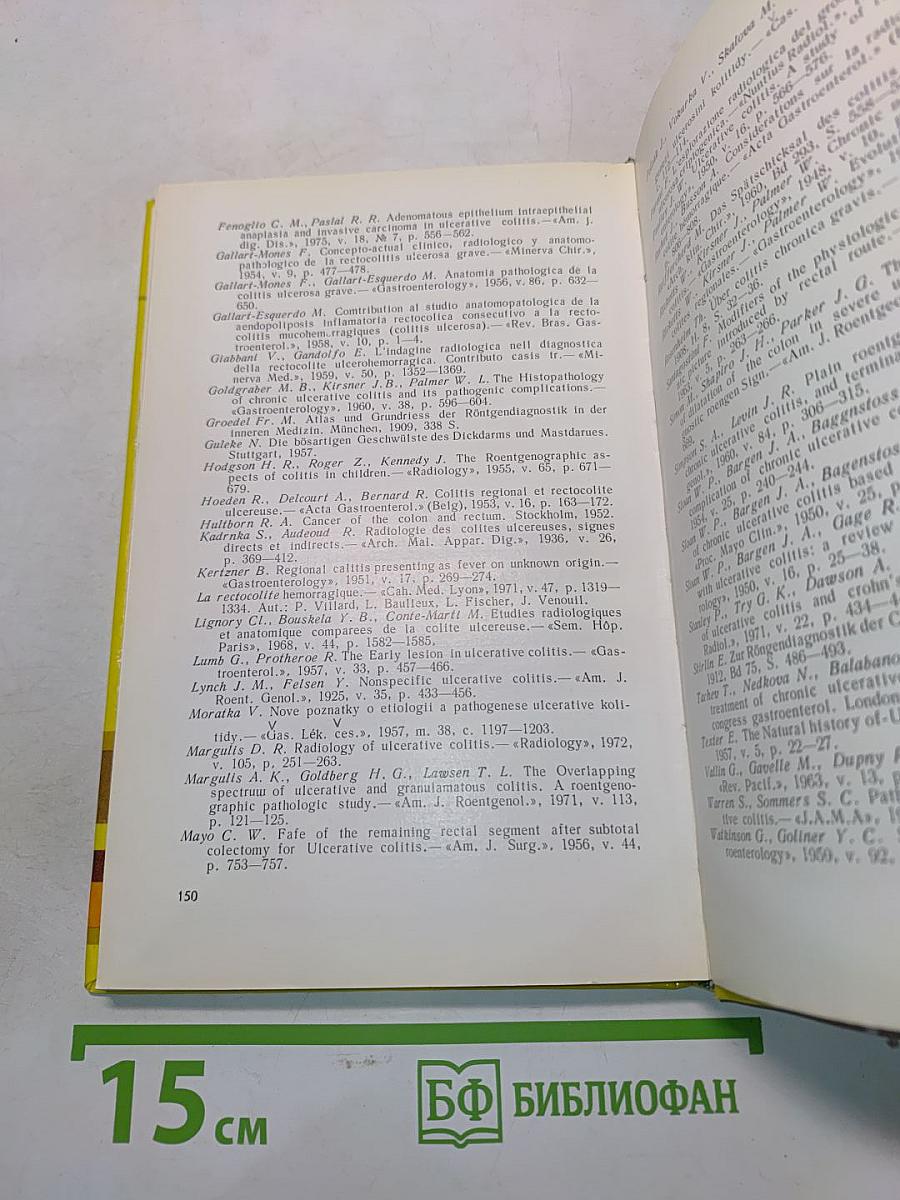 Fenoglio C. M., Paslal R. R. Adenomatous epithelium intraepithelial
anaplasia and invasive carcinoma in ulcerative colitis.—«Am. j.
dig. Dis.», 1975, v. 18, № 7, p. 556—562.
Gallart-Mones F. Concepto-actual clinico, radiologico y anatomo-
pathologico de la rectocolitis ulcerosa grave.—«Minerva Chir.»,
1954, v. 9, p. 477—478.
Gallart-Mones F., Gallart-Esquerdo M. Anatomia pathologica de la
colitis ulcerosa grave.—«Gastroenterology», 1956, v. 86, p. 632—
650.
Gallart-Esquerdo M. Comtribution al studio anatomopatologica de la
aendopoliposis inflamatoria rectocolica consecutivo a la recto-
colitis mucohemorragiques (colitis ulcerosa).—«Rev. Bras. Gas-
troenterol.», 1958, v. 10, p. 1—4.
Giabbani V., Gandolfo E. L'indagine radiologica nell diagnostica
della rectocolite ulcerohemorragica. Contributo casis tr.—«Mi-
nerva Med.», 1959, v. 50, p. 1352—1369.
Goldgraber M. B., Kirsner J. B., Palmer W. L. The Histopathology
of chronic ulcerative colitis and its pathogenic complications.—
«Gastroenterology», 1960, v. 38, p. 596—604.
Groedel Fr. M. Atlas und Grundriess der Röntgendiagnostik in der
inneren Medizin. München, 1909, 338 S.
Guleke N. Die bösartigen Geschwülste des Dickdarms und Mastdarues.
Stuttgart, 1957.
Hodgson H. R., Roger Z., Kennedy J. The Roentgenographic as-
pects of colitis in children.—«Radiology», 1955, v. 65, p. 671—
679.
Hoeden R., Delcourt A., Bernard R. Colitis regional et rectocolite
ulcereuse.—«Acta Gastroenterol.» (Belg), 1953, v. 16, p. 163—172.
Hultborn R. A. Cancer of the colon and rectum. Stockholm, 1952.
Kadrnka S., Audeoud R. Radiologie des colites ulcereuses, signes
directs et indirects.—«Arch. Mal. Appar. Dig.», 1936, v. 26,
p. 369—412.
Kertzner B. Regional calitis presenting as fever on unknown origin.—
«Gastroenterology», 1951, v. 17, p. 269—274.
La rectocolite hemorragique.—«Cah. Med. Lyon», 1971, v. 47, p. 1319—
1334. Aut.: P. Villard, L. Baulleux, L. Fischer, J. Venouil.
Lignory Cl., Bouskela Y. B., Conte-Marti M. Etudies radiologiques
et anatomique comparees de la colite ulcereuse.—«Sem. Hôp.
Paris», 1968, v. 44, p. 1582—1585.
Lumb G., Protheroe R. The Early lesion in ulcerative colitis.—«Gas-
troenterol.», 1957, v. 33, p. 457—466.
Lynch J. M., Felsen Y. Nonspecific ulcerative colitis.—«Am. J.
Roent. Genol.», 1925, v. 35, p. 433—456.
Moratka V. Nove poznatky o etiologii a pathogenese ulcerative koli-
tidy.—«Gas. Lék. ces.», 1957, m. 38, c. 1197—1203.
Margulis D. R. Radiology of ulcerative colitis.—«Radiology», 1972,
v. 105, p. 251—263.
Margulis A. K., Goldberg H. G., Lawsen T. L. The Overlapping
spectrum of ulcerative and granulamatous colitis. A roentgeno-
graphic pathologic study.—«Am. J. Roentgenol.», 1971, v. 113,
p. 121—125.
Mayo C. W. Fafe of the remaining rectal segment after subtotal
colectomy for Ulcerative colitis.—«Am. J. Surg.», 1956, v. 44,
p. 753—757.
150
Vokurka V., Skalova M.
Levin J. R. Plain roentg
chronic ulcerative colitis, and termina
genol.», 1960, v. 84, p. 306—315.
W. P., Bargen J. A., Baggnstoss
complication of chronic ulcerative co
1954, v. 25, p. 240—244.
Sloan W. P., Bargen J. A., Bagenstoss
of chronic ulcerative colitis based
«Proc. Mayo Clin.», 1950, v. 25, p.
Sloan W. P., Bargen J. A., Gage R.
with ulcerative colitis: a review
rology», 1950, v. 16, p. 25—38.
Stanley P., Try G. K., Dawson A.
of ulcerative colitis and crohn's
Radiol.», 1971, v. 22, p. 434—4
Stierlin E. Zur Röngendiagnostik der C
1912, Bd 75, S. 486—493.
Tachen T., Nedkova N., Balabano
treatment of chronic ulcerative
congress gastroenterol. London
Texter E. The Natural history of U
1957, v. 5, p. 22—27.
Vallin G., Gavelle M., Dupny R
«Rev. Pacif.», 1963, v. 13, p.
Warren S., Sommers S. C. Path
tive colitis.—«J.A.M.A», 19
Watkinson G., Gollner Y. C.
roenterology», 1950, v. 92,
15 см
БФ БИБЛИОФАН